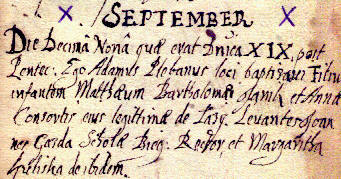 SEPTEMBER
Die Decima Nona quæ erat Dnica XIX. post
Pentec: Ego Adamus Plebanus loci baptizavi Filiu
infantem Matthæum Bartholomæi et Anna
Consortis eius legitimæ de Levantes Joan
nes Garda Scholæ Rector, et Margaritha
de ibidem.